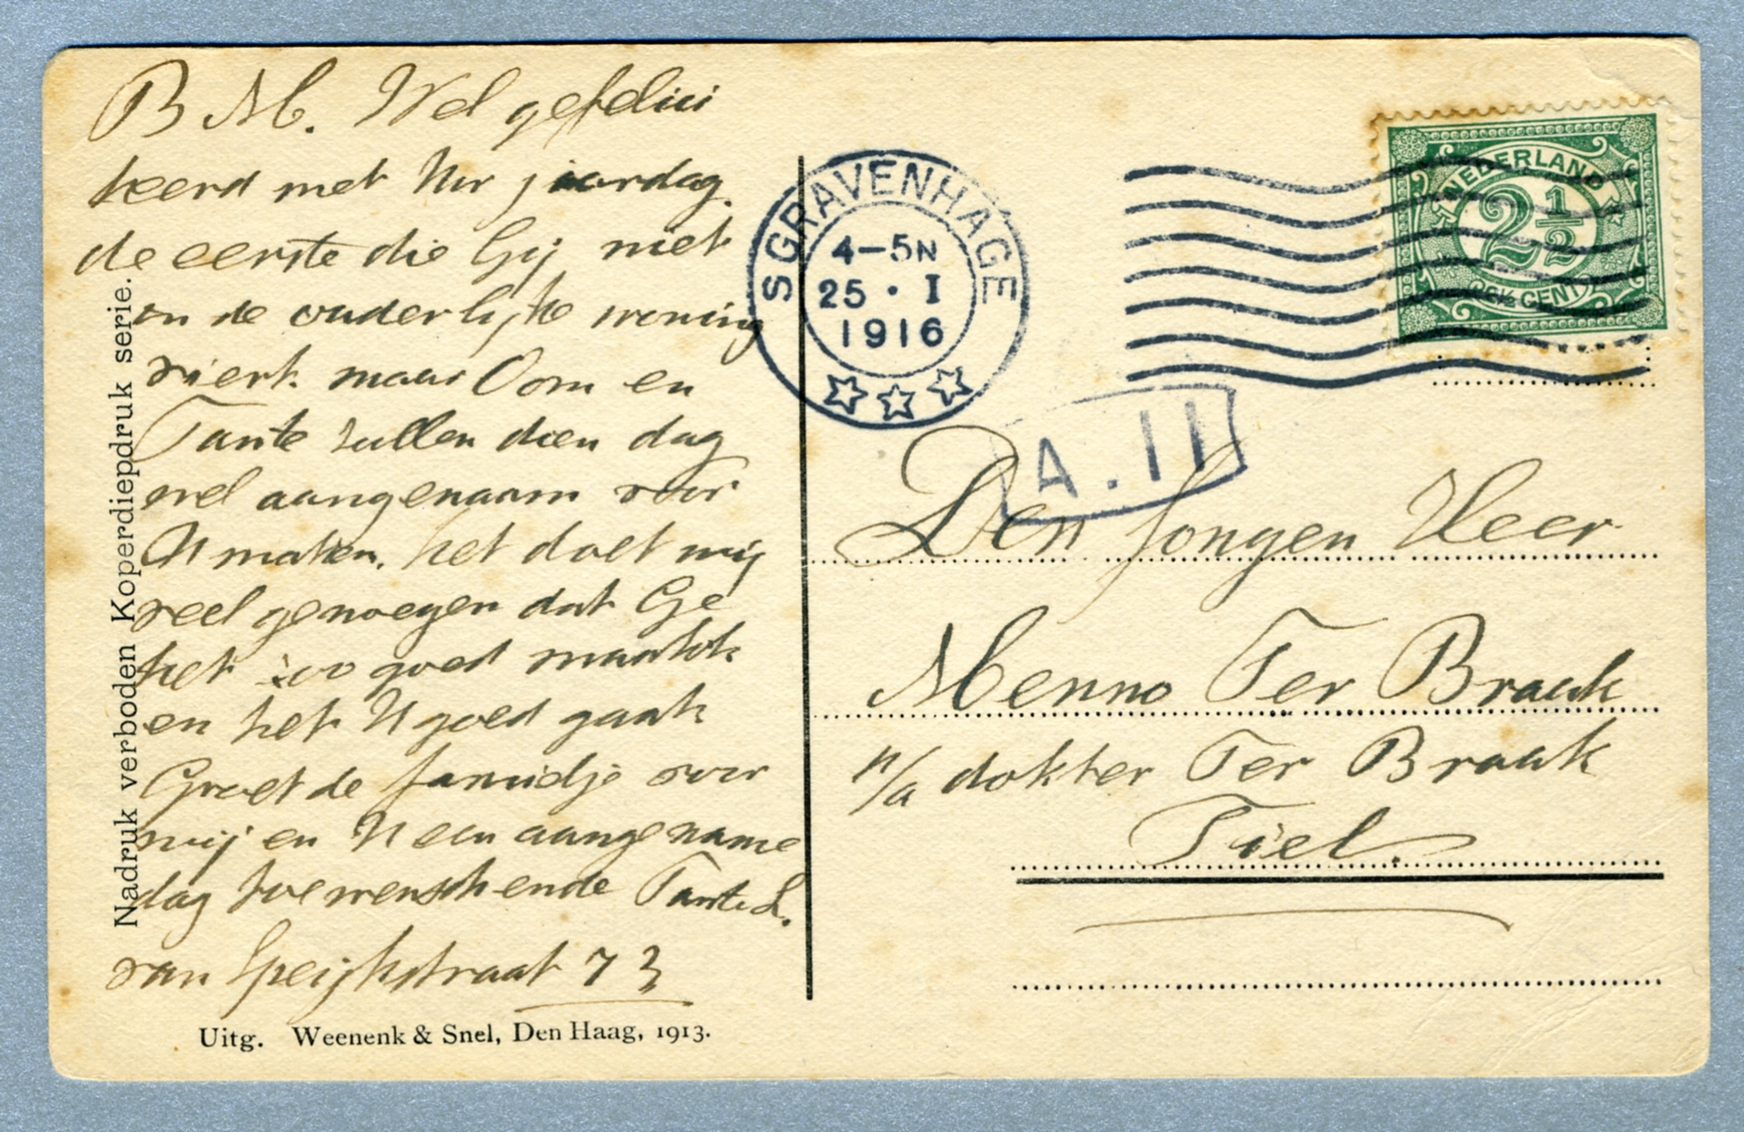 B M. Wel gefelici
teerd met Uw jaardag.
de eerste die Gij niet
in de ouderlijke woning
viert. maar Oom en
Tante zullen dien dag
wel aangenaam voor
U maken. het doet mij
veel genoegen dat Ge
het zoo goed maakt.
en het U goed gaat
Groet de familje voor
mij en U een aangename
dag toewenschende Tante L.
van Speijkstraat 73
Uitg. Weenenk & Snel, Den Haag, 1913.
Nadruk verboden Koperdiepdruk serie.
SGRAVENHAGE
4-5N
25 · I
1916
NEDERLAND
2 1/2
CENT
A.II
Den Jongen Heer
Menno Ter Braak
p/a dokter Ter Braak
Tiel.